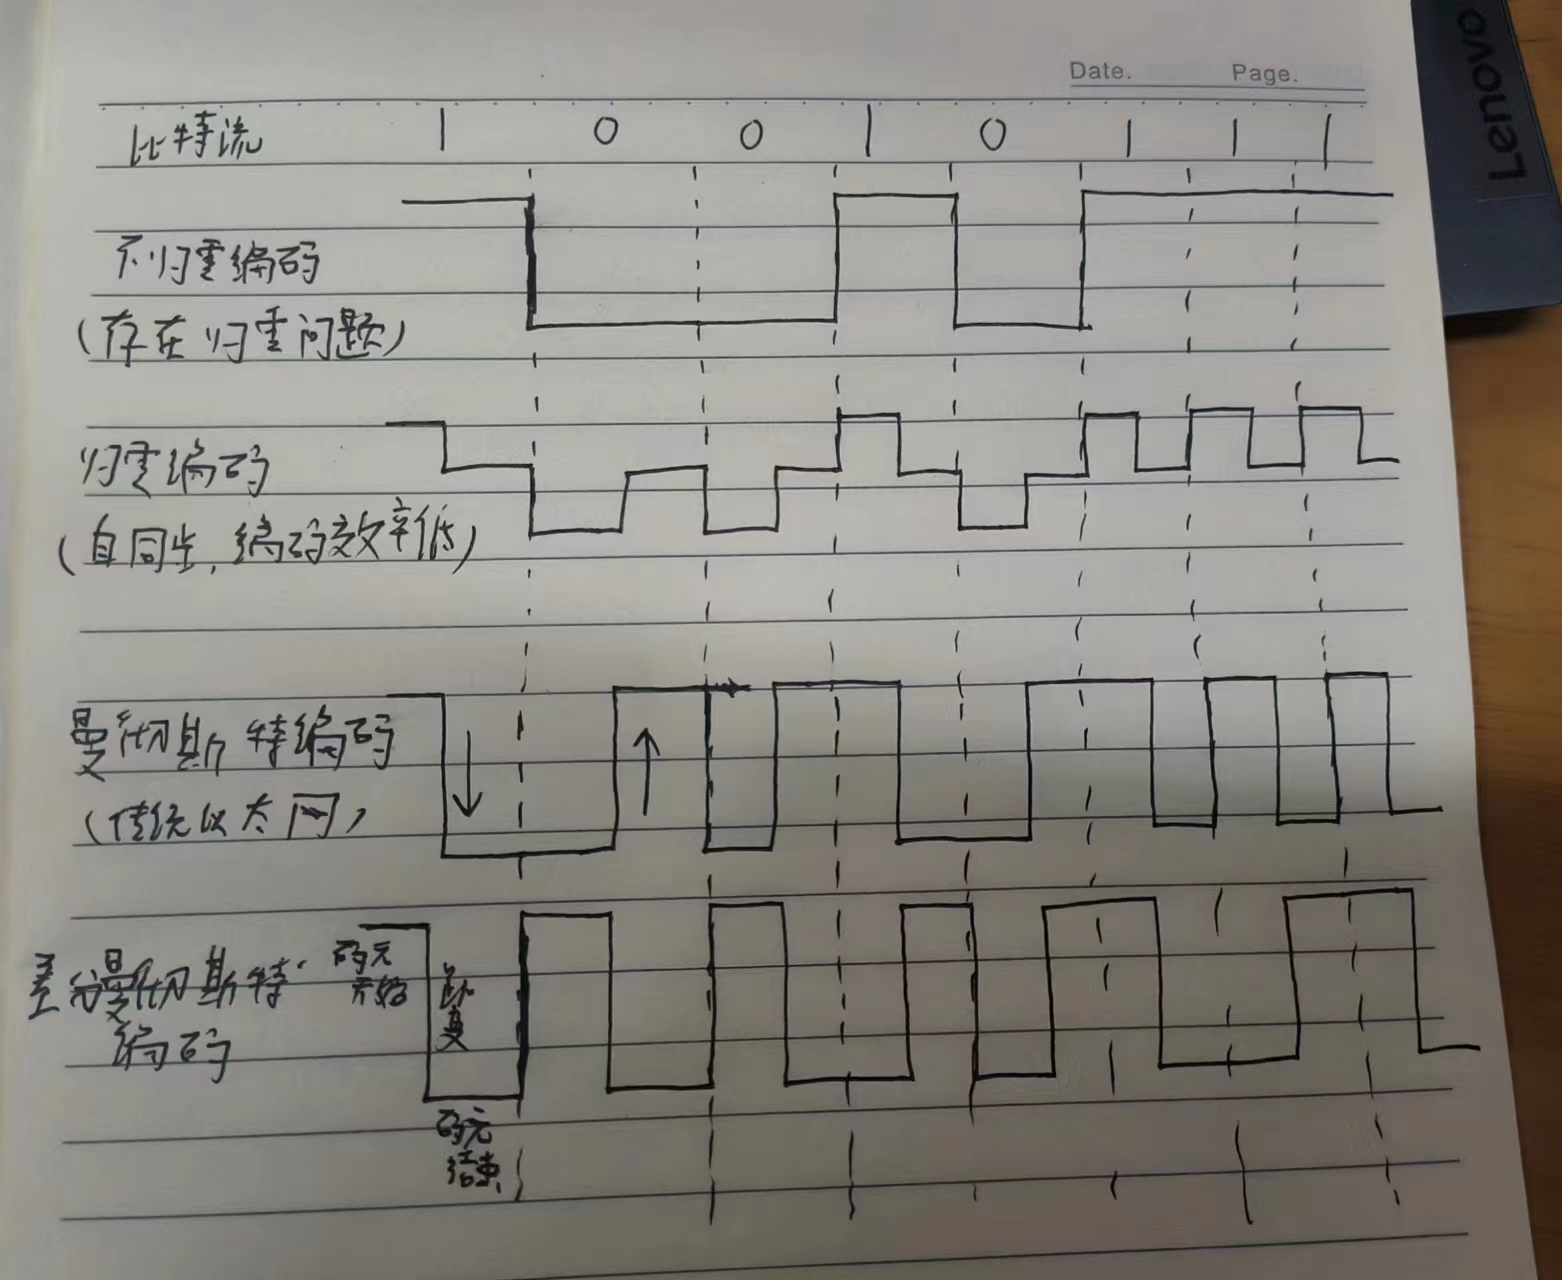 Date. Page.
Lenovo
比特流 1 0 0 1 0 1 1 1
不归零编码
(存在归零问题)
归零编码
(自同步,编码效率低)
曼彻斯特编码
(传统以太网)
差分曼彻斯特
编码
码元
开始
跳变
码元
结束